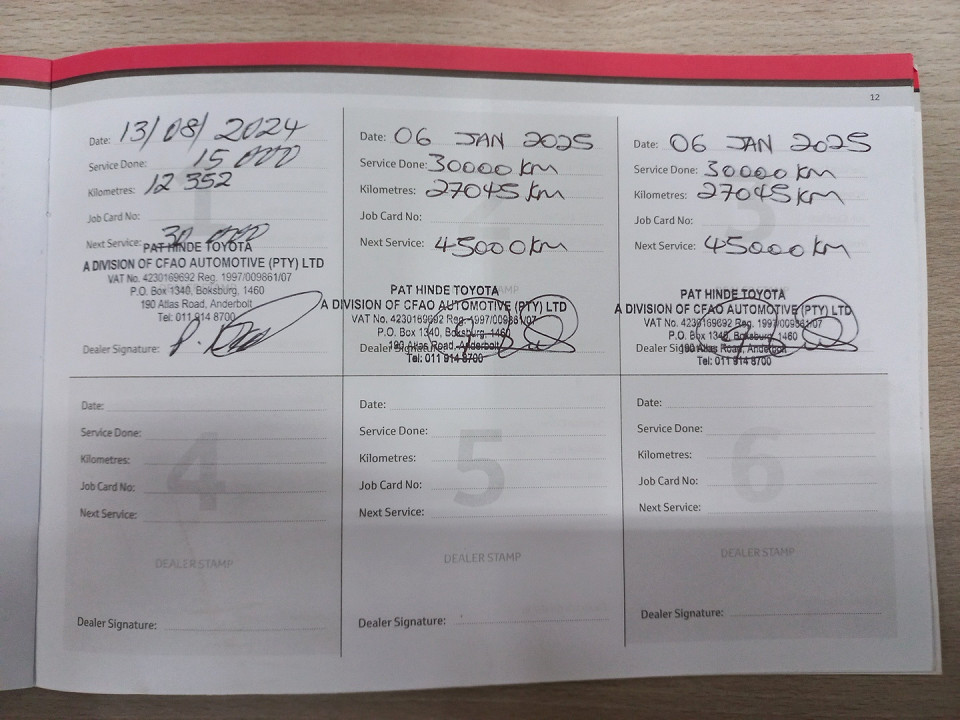 12
Date: 13/08/2024
Service Done: 15 000
Kilometres: 12 352
Job Card No:
Next Service: 30 000
PAT HINDE TOYOTA
A DIVISION OF CFAO AUTOMOTIVE (PTY) LTD
VAT No. 4230169692 Reg. 1997/009861/07
P.O. Box 1340, Boksburg, 1460
190 Atlas Road, Anderbolt
Tel: 011 914 8700
Dealer Signature:
Date: 06 JAN 2025
Service Done: 30000 km
Kilometres: 27045 km
Job Card No:
Next Service: 45000 km
PAT HINDE TOYOTA
A DIVISION OF CFAO AUTOMOTIVE (PTY) LTD
VAT No. 4230169692 Reg. 1997/009861/07
P.O. Box 1340, Boksburg, 1460
190 Atlas Road, Anderbolt
Tel: 011 914 8700
Dealer Signature:
3
Date: 06 JAN 2025
Service Done: 30000 km
Kilometres: 27045 km
Job Card No:
Next Service: 45000 km
PAT HINDE TOYOTA
A DIVISION OF CFAO AUTOMOTIVE (PTY) LTD
VAT No. 4230169692 Reg. 1997/009861/07
P.O. Box 1340, Boksburg, 1460
190 Atlas Road, Anderbolt
Tel: 011 914 8700
Dealer Signature:
4
Date:
Service Done:
Kilometres:
Job Card No:
Next Service:
DEALER STAMP
Dealer Signature:
5
Date:
Service Done:
Kilometres:
Job Card No:
Next Service:
DEALER STAMP
Dealer Signature:
6
Date:
Service Done:
Kilometres:
Job Card No:
Next Service:
DEALER STAMP
Dealer Signature: